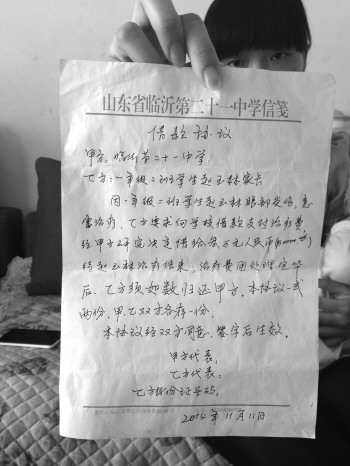 山东省临沂第二十一中学信笺
借款协议
甲方:临沂第二十一中学
乙方:一年级二班学生赵玉林家长
因一年级二班学生赵玉林眼部受伤,急
需治疗,乙方要求向学校借款支付治疗费,
经甲方研究决定借给叁万元人民币
待赵玉林治疗结束,治疗费用处理完毕
后,乙方须如数归还甲方。本协议一式
两份,甲、乙双方各存一份。
本协议经双方同意,签字后生效。
甲方代表:
乙方代表:
乙方身份证号码:
2014年11月11日